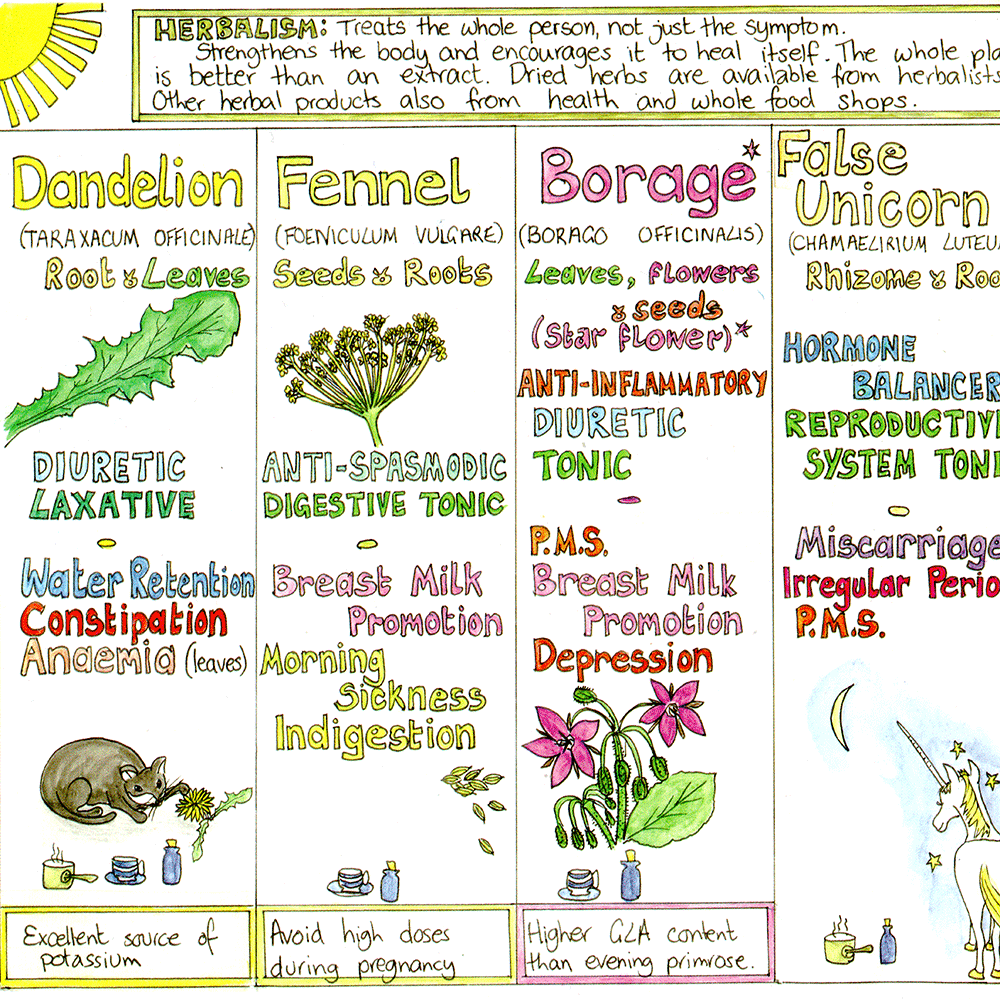 HERBALISM: Treats the whole person, not just the symptom.
Strengthens the body and encourages it to heal itself. The whole pla
is better than an extract. Dried herbs are available from herbalists
Other herbal products also from health and whole food shops.
Dandelion
(TARAXACUM OFFICINALE)
Root & Leaves
DIURETIC
LAXATIVE
-
Water Retention
Constipation
Anaemia (leaves)
Excellent source of
potassium
Fennel
(FOENICULUM VULGARE)
Seeds & Roots
ANTI-SPASMODIC
DIGESTIVE TONIC
-
Breast Milk
Promotion
Morning
Sickness
Indigestion
Avoid high doses
during pregnancy
Borage*
(BORAGO OFFICINALIS)
Leaves, flowers
& seeds
(Star flower)*
ANTI-INFLAMMATORY
DIURETIC
TONIC
-
P.M.S.
Breast Milk
Promotion
Depression
Higher GLA content
than evening primrose.
False
Unicorn
(CHAMAELIRIUM LUTEU
Rhizome & Roo
HORMONE
BALANCER
REPRODUCTIV
SYSTEM TONI
-
Miscarriage
Irregular Perio
P.M.S.